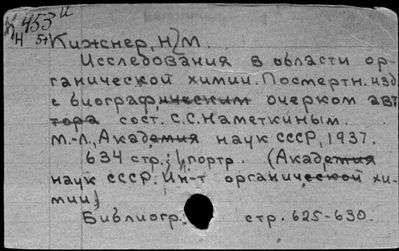 К 453 и
Н 54
Кижнер, Н. М.
Исследования в области ор-
ганической химии. Посмертн. изд.
с биографическим очерком авт
тора сост. С. С. Наметкиным.
М.-Л., Академия наук СССР, 1937.
634 стр.; 1 портр. (Академия
наук СССР. Ин-т органической хи-
мии)
Библиогр. стр. 625-630.